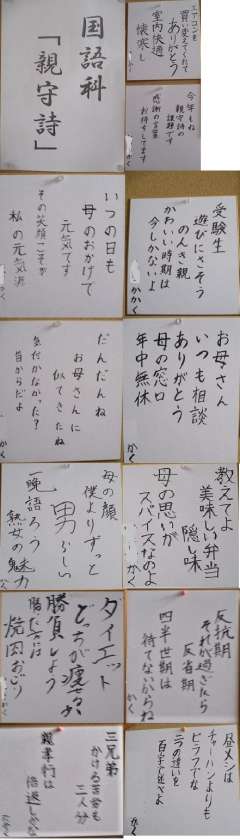 国語科
「親守詩」
エアコンも
買い変えてくれて
ありがとう
室内快適
懐寂し
今年もね
親守詩の
課題です
感謝の言葉
お待ちしてます
いつの日も
母のおかげで
元気です
その笑顔こそが
私の元気源
かく
受験生
遊びにさそう
のんき親
かわいい時期は
今しかないよ
かく
だんだんね
お母さんに
似てきたね
気だかなかった?
昔からだよ
かく
お母さん
いつも相談
ありがとう
母の窓口
年中無休
かく
母の顔
僕よりずっと
男らしい
一晩語ろう
熟女の魅力
教えてよ
美味しい弁当
隠し味
母の思いが
スパイスなのよ
かく
ダイエット
どっちが痩せるか
勝負しよう
勝った方に
焼肉おごり
反抗期
それが過ぎたら
反省期
四半世期は
待てないからね
かく
三兄弟
かける苦労も
三人分
親孝行は
倍返しかな
昼メシは
チャーハンよりも
ピラフでな
二つの違いを
百字で述べよ
かく